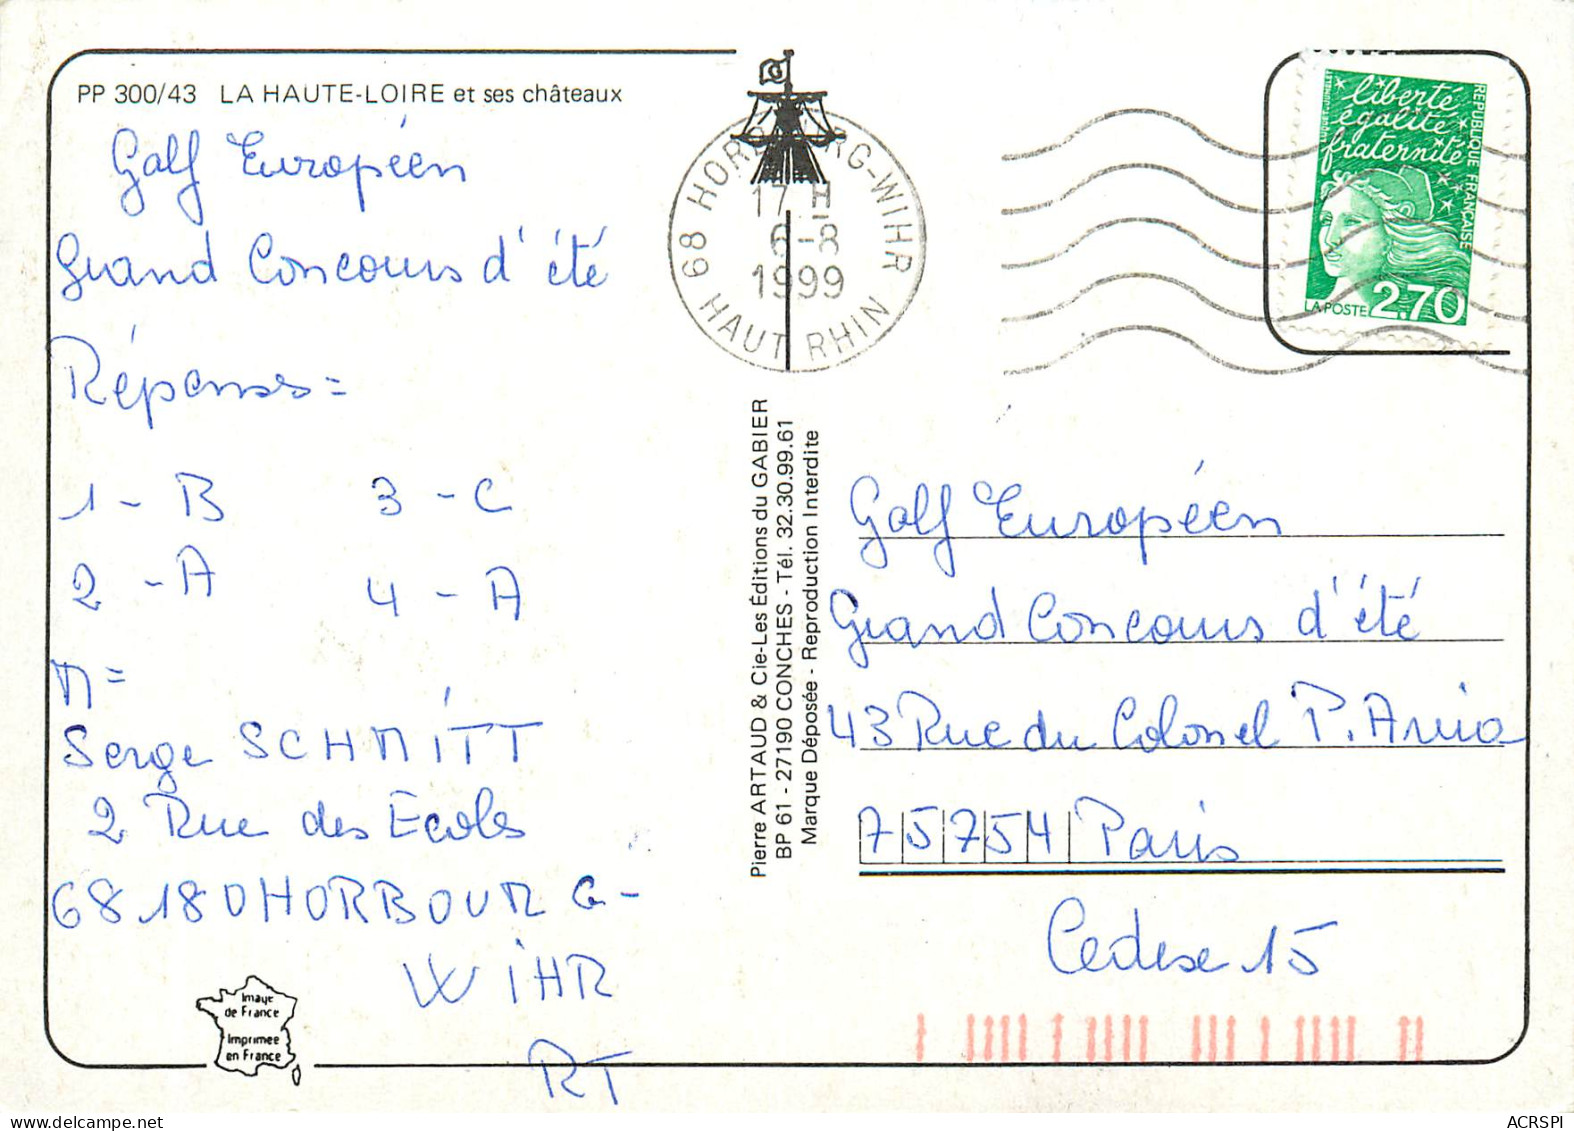 PP 300/43 LA HAUTE-LOIRE et ses châteaux
Golf Européen
Grand Concours d'été
Réponses =
1 - B 3 - C
2 - A 4 - A
M =
Serge SCHMITT
2 Rue des Ecoles
68180 HORBOURG -
WIHR
RT
Image
de France
Imprimée
en France
68 HORBOURG-WIHR
17 H
6-8
1999
HAUT RHIN
liberté
égalité
fraternité
RÉPUBLIQUE FRANÇAISE
LA POSTE 2,70
Pierre ARTAUD & Cie-Les Éditions du GABIER
BP 61 - 27190 CONCHES - Tél. 32.30.99.61
Marque Déposée - Reproduction Interdite
Golf Européen
Grand Concours d'été
43 Rue du Colonel P. Avia
75754 Paris
Cedex 15
ACRSPI